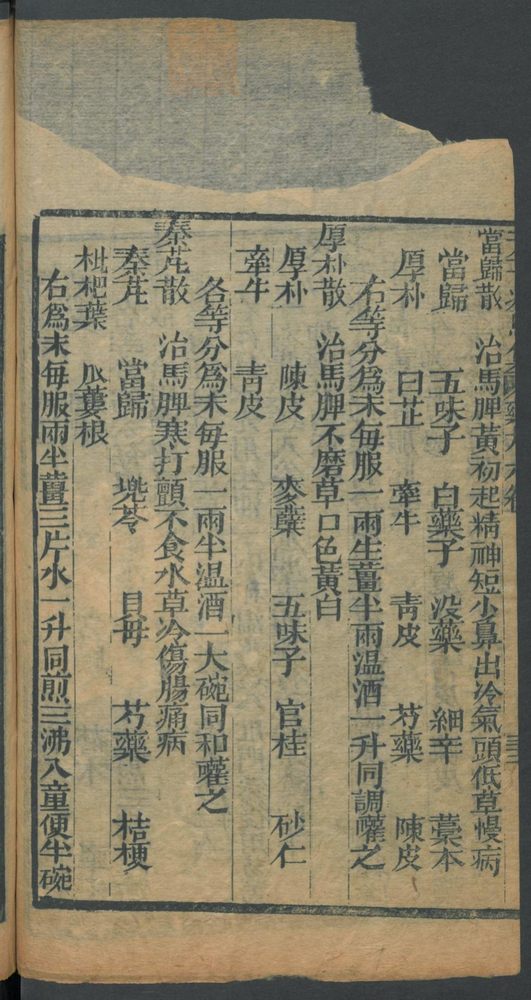 當歸散　治馬脾黃初起精神短少鼻出冷氣頭低草慢病
當歸　五味子　白藥子　没藥　細辛　藁本
厚朴　白芷　牽牛　青皮　芍藥　陳皮
右等分爲末每服一兩生薑半兩温酒一升同調嚾之
厚朴散　治馬脾不磨草口色黃白
厚朴　陳皮　麥蘖　五味子　官桂　砂仁
牽牛　青皮
各等分爲末每服一兩半温酒一大碗同和嚾之
秦艽散　治馬脾寒打顫不食水草冷傷腸痛病
秦艽　當歸　兠苓　貝毋　芍藥　桔梗
枇杷葉　瓜蔞根
右爲末每服兩半薑三片水一升同煎三沸入童便半碗